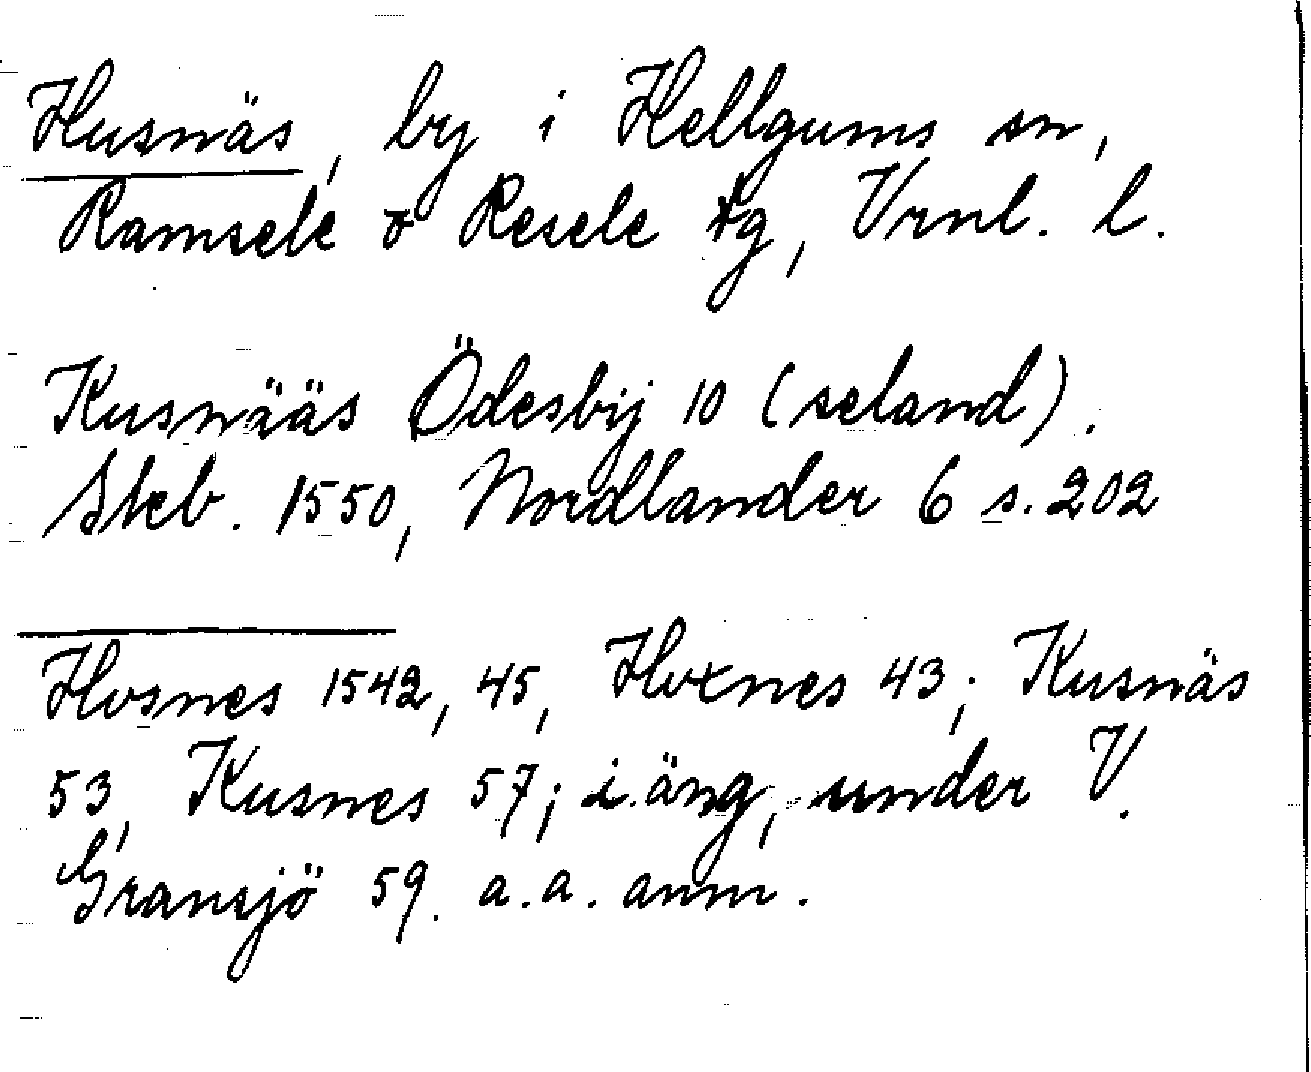 Husnäs, by i Hellgums sn,
Ramsele o Resele tg, Vrnl. l.
Kusnääs Ödesbij 10 (seland).
Skb. 1550, Nordlander 6 s. 202
Hosnes 1542, 45, Hoxnes 43; Kusnäs
53, Kusnes 57; i äng, under V.
Gransjö 59. a.a. anm.